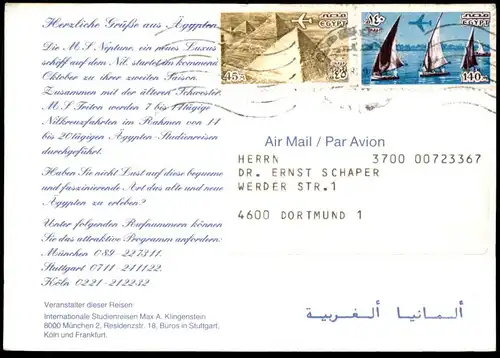 Herzliche Grüße aus Ägypten
Die M.S. Neptune, ein neues Luxus
schiff auf dem Nil, startet im kommend
Oktober zu ihrer zweiten Saison.
Zusammen mit der älteren Schwester
M S Triton werden 7 bis 14tägige
Nilkreuzfahrten im Rahmen von 14
bis 20tägigen Ägypten-Studienreisen
durchgeführt.
Haben Sie nicht Lust auf diese bequeme
und faszinierende Art das alte und neue
Ägypten zu erleben?
Unter folgenden Rufnummern können
Sie das attraktive Programm anfordern:
München 089-227311.
Stuttgart 0711-241122.
Köln 0221-212212
Veranstalter dieser Reisen:
Internationale Studienreisen Max A. Klingenstein
8000 München 2, Residenzstr. 18, Büros in Stuttgart,
Köln und Frankfurt.
EGYPT مصر
45 ٤٥
١٤٠ EGYPT مصر
140
Air Mail / Par Avion
HERRN 3700 00723367
DR. ERNST SCHAPER
WERDER STR.1
4600 DORTMUND 1
ألمانيا ألغربية